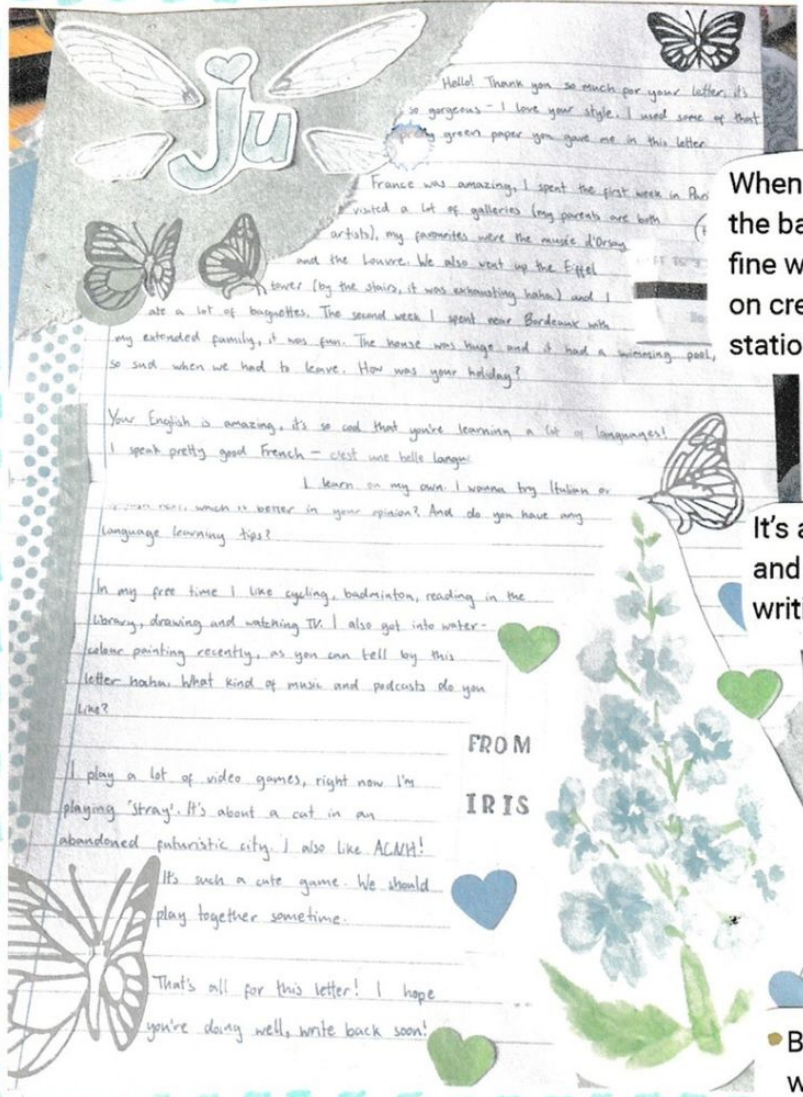 ju
Hello! Thank you so much for your letter, it's
so gorgeous - I love your style. I used some of that
pretty green paper you gave me in this letter
France was amazing, I spent the first week in Paris
visited a lot of galleries (my parents are both
artists), my favourites were the musée d'Orsay
and the Louvre. We also went up the Eiffel
tower (by the stairs, it was exhausting haha) and I
ate a lot of baguettes. The second week I spent near Bordeaux with
my extended family, it was fun. The house was huge and it had a swimming pool,
so sad when we had to leave. How was your holiday?
Your English is amazing, it's so cool that you're learning a lot of languages!
I speak pretty good French - c'est une belle langue
I learn on my own. I wanna try Italian or
which is better in your opinion? And do you have any
language learning tips?
In my free time I like cycling, badminton, reading in the
library, drawing and watching TV. I also got into water-
colour painting recently, as you can tell by this
letter haha. What kind of music and podcasts do you
like?
I play a lot of video games, right now I'm
playing 'Stray'. It's about a cat in an
abandoned futuristic city. I also like ACNH!
It's such a cute game. We should
play together sometime.
That's all for this letter! I hope
you're doing well, write back soon!
FROM
IRIS
When
the ba
fine w
on cre
statio
It's a
and
writ
B
w